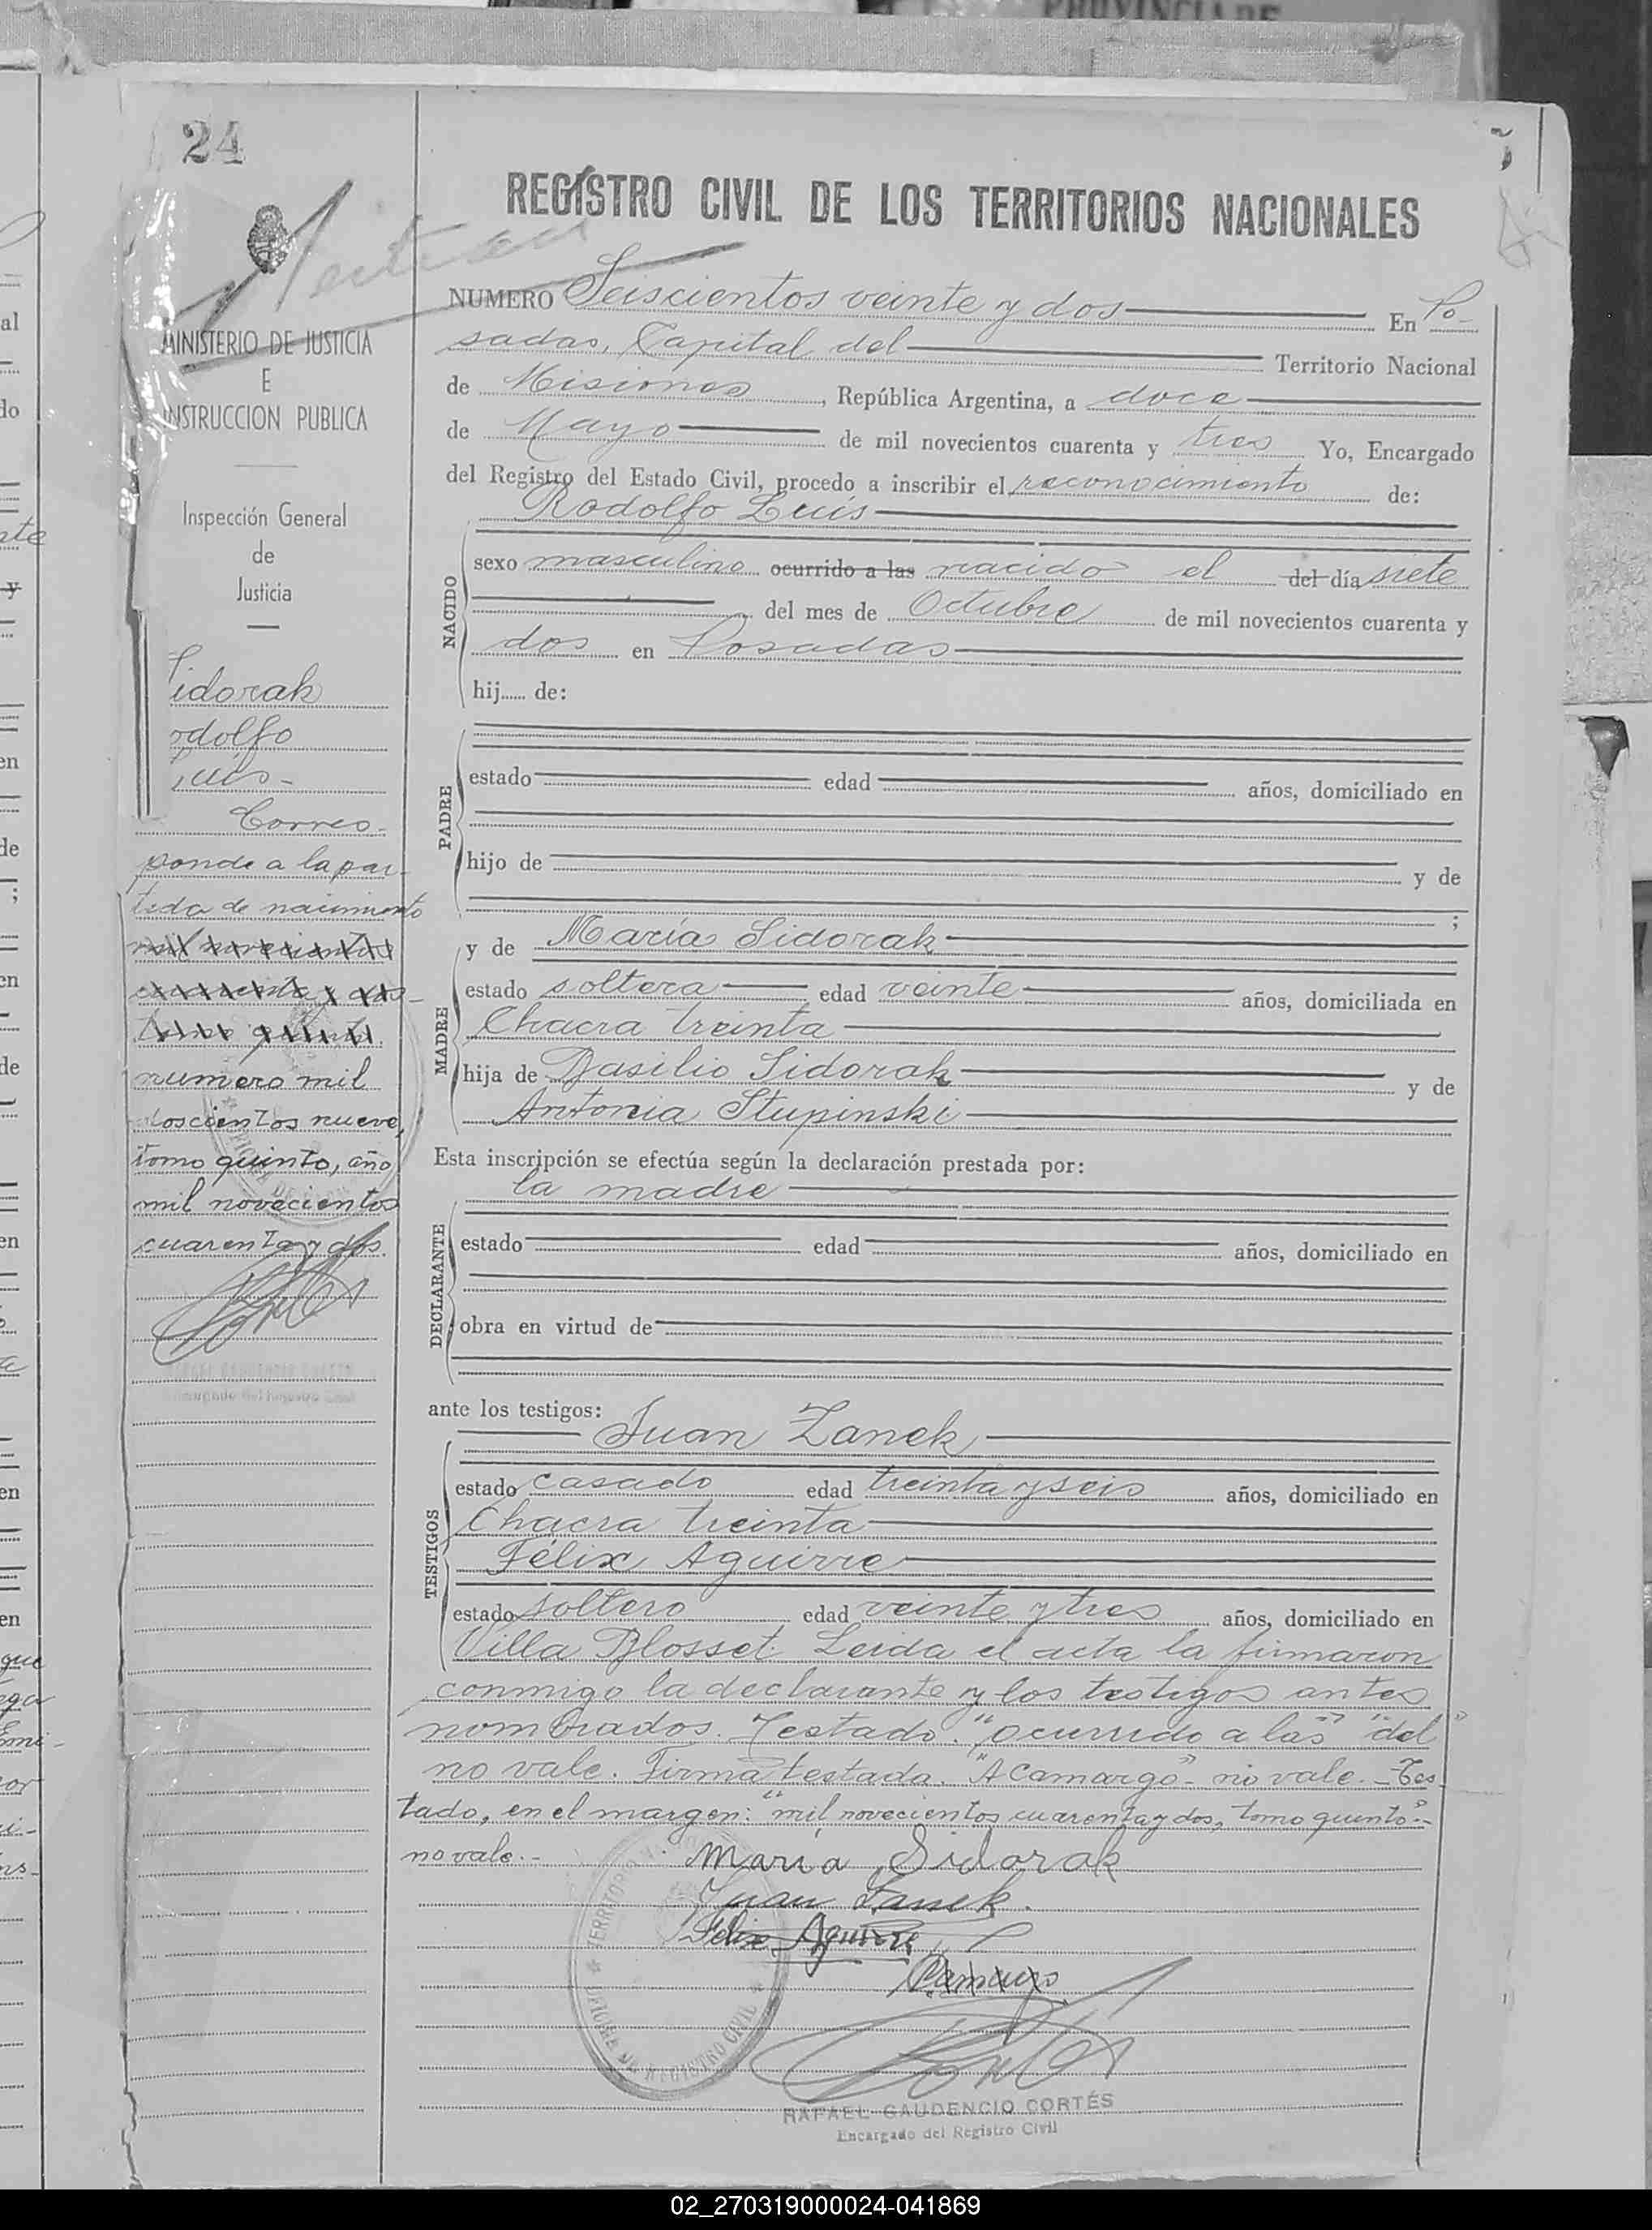 PROVINCIA DE
24
REGISTRO CIVIL DE LOS TERRITORIOS NACIONALES
MINISTERIO DE JUSTICIA
E
INSTRUCCION PUBLICA
Inspección General
de
Justicia
Sidorak
odolfo
Luis-
Corres-
ponde a la par-
tida de nacimiento
mil novecientos
cuarenta y dos-
tomo quinto.
numero mil
doscientos nueve,
tomo quinto, año
mil novecientos
cuarenta y dos.
NUMERO Seiscientos veinte y dos En Po-
sadas, Capital del Territorio Nacional
de Misiones, República Argentina, a doce
de Mayo de mil novecientos cuarenta y tres Yo, Encargado
del Registro del Estado Civil, procedo a inscribir el reconocimiento de:
Rodolfo Luis
NACIDO
sexo masculino ocurrido a las nacido el del día siete
del mes de Octubre de mil novecientos cuarenta y
dos en Posadas
hij...... de:
PADRE
estado edad años, domiciliado en
hijo de y de
;
MADRE
y de María Sidorak
estado soltera edad veinte años, domiciliada en
Chacra treinta
hija de Basilio Sidorak y de
Antonia Stupinski
Esta inscripción se efectúa según la declaración prestada por:
la madre
DECLARANTE
estado edad años, domiciliado en
obra en virtud de
ante los testigos:
Juan Zanek
TESTIGOS
estado casado edad treinta y seis años, domiciliado en
Chacra treinta
Félix Aguirre
estado soltero edad veinte y tres años, domiciliado en
Villa Blosset. Leida el acta la firmaron
conmigo la declarante y los testigos antes
nombrados. Testado: "ocurrido a las" "del"
no vale. Firma testada. "A Camargo"- no vale.- Tes-
tado, en el margen: "mil novecientos cuarenta y dos, tomo quinto".-
no vale.-
María Sidorak
Juan Zanek.
Felix Aguirre
TERRITORIO
OFICINA DE REGISTRO CIVIL
RAFAEL GAUDENCIO CORTÉS
Encargado del Registro Civil
02_270319000024-041869